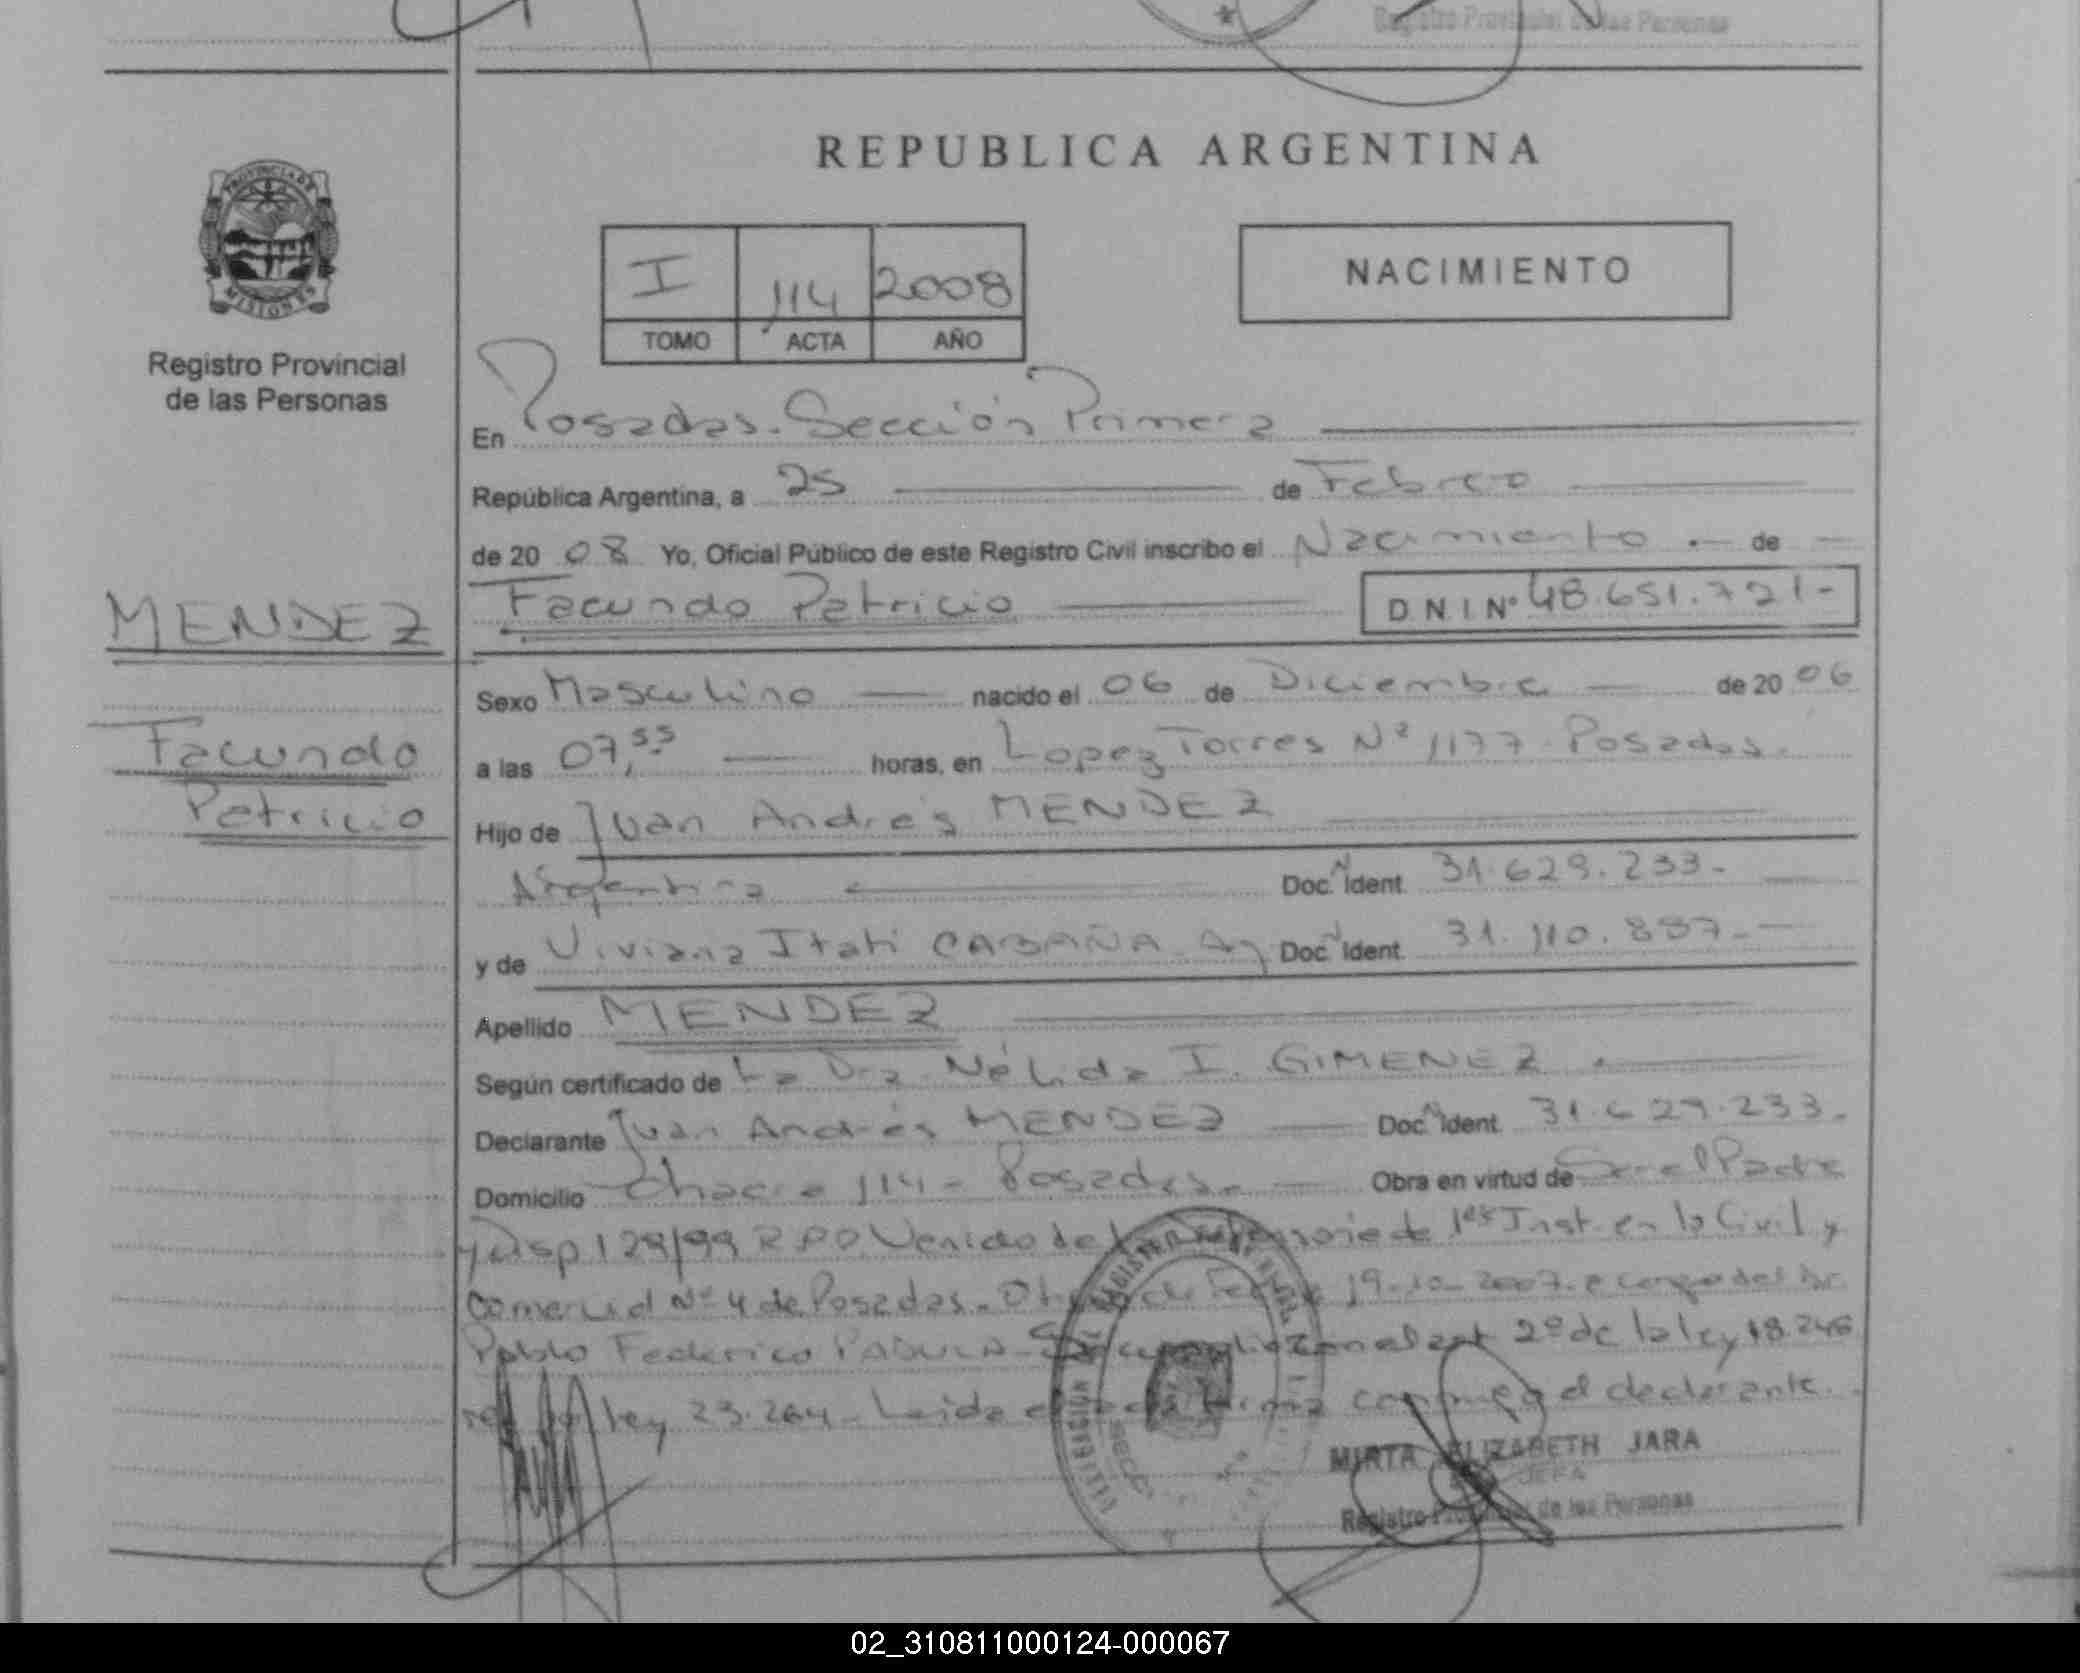 Registro Provincial de las Personas
REPUBLICA ARGENTINA
PROVINCIA DE
MISIONES
Registro Provincial
de las Personas
I 114 2008
TOMO ACTA AÑO
NACIMIENTO
En Posadas. Sección Primera
República Argentina, a 25 de Febrero
de 20 08 Yo, Oficial Público de este Registro Civil inscribo el Nacimiento de
MENDEZ
Facundo Patricio
D.N.I. Nº 48.651.721-
Sexo Masculino nacido el 06 de Diciembre de 20 06
Facundo
Patricio
a las 07,55 horas, en Lopez Torres Nº 1177 Posadas.
Hijo de Juan Andrés MENDEZ
Argentina Doc. Ident. 31.629.233-
y de Viviana Itati CABAÑA Arg Doc. Ident. 31.110.897-
Apellido MENDEZ
Según certificado de La Dra. Nélida I. GIMENEZ
Declarante Juan Andrés MENDEZ Doc. Ident. 31.629.233-
Domicilio Chacra 114 - Posadas. Obra en virtud de Ser el Padre
y Disp 129/99 RPP. Venido de 1era Inst. en lo Civil y
Comercial Nº 4 de Posadas. 19-10-2007 a cargo del Dr.
Pablo Federico 2º de la ley 18.248
ley 23.264 - Leida firma conmigo el declarante.
MIRTA ELIZABETH JARA
JEFA
Registro Provincial de las Personas
02_310811000124-000067